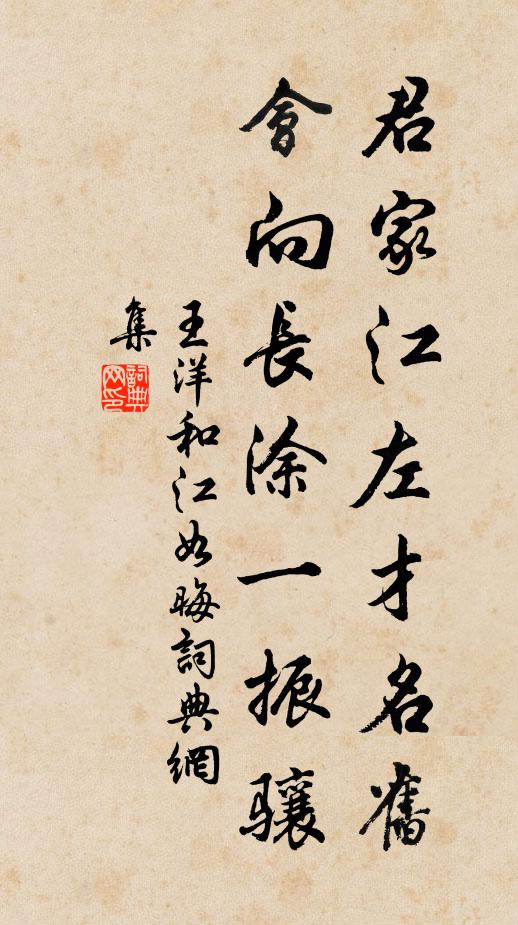 君家江左才名舊
會向長涂一振骧
王洋和江如晦詞典網
集
詞典
网印